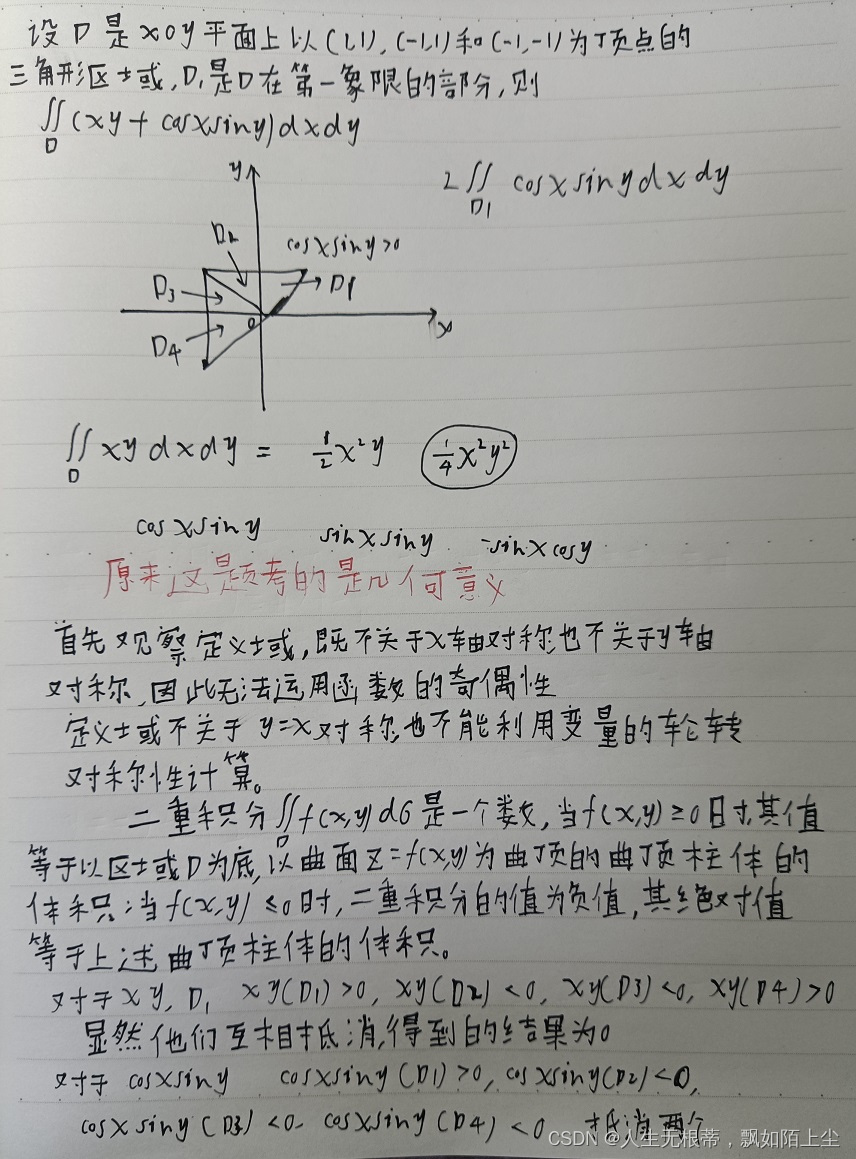 设D是xOy平面上以(1,1), (-1,1)和(-1,-1)为顶点的
三角形区域, D₁是D在第一象限的部分, 则
∬_D (xy + cosxsiny)dxdy
2∬_D1 cosxsinydxdy
y
D2
cosxsiny>0
D3
D1
0
x
D4
∬_D xydxdy = ½x²y ¼x²y²
cosxsiny sinxsiny -sinxcosy
原来这题考的是几何意义
首先观察定义域, 既不关于x轴对称, 也不关于y轴
对称, 因此无法运用函数的奇偶性
定义域不关于y=x对称, 也不能利用变量的轮转
对称性计算。
二重积分∬_D f(x,y)dσ是一个数, 当f(x,y)≥0时, 其值
等于以区域D为底, 以曲面z=f(x,y)为曲顶的曲顶柱体的
体积; 当f(x,y)≤0时, 二重积分的值为负值, 其绝对值
等于上述曲顶柱体的体积。
对于xy, D₁ xy(D1)>0, xy(D2)<0, xy(D3)<0, xy(D4)>0
显然他们互相抵消, 得到的结果为0
对于 cosxsiny cosxsiny(D1)>0, cosxsiny(D2)<0,
cosxsiny(D3)<0, cosxsiny(D4)<0 抵消两个
CSDN @人生无根蒂，飘如陌上尘